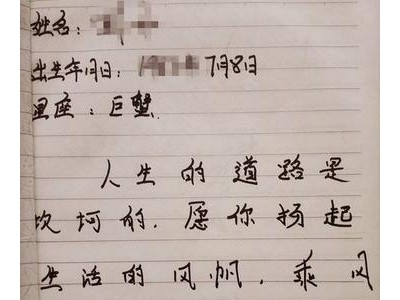 姓名：
出生年月日：19 7月8日
星座：巨蟹.
人生的道路是
坎坷的.愿你扬起
生活的风帆,乘风